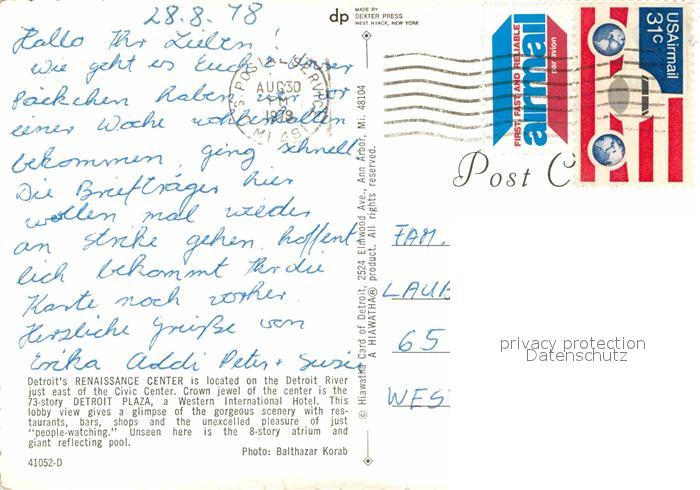 28.8.78
Hallo Ihr Lieben!
Wie geht es Euch? Unser
Päckchen haben wir vor
einer Woche wohlerhalten
bekommen, ging schnell
Die Briefträger hier
wollen mal wieder
an strike gehen, hoffent
lich bekommt Ihr die
Karte noch vorher.
Herzliche Grüße von
Erika Addi Peter + Susi
Detroit's RENAISSANCE CENTER is located on the Detroit River
just east of the Civic Center. Crown jewel of the center is the
73-story DETROIT PLAZA, a Western International Hotel. This
lobby view gives a glimpse of the gorgeous scenery with res-
taurants, bars, shops and the unexcelled pleasure of just
"people-watching." Unseen here is the 8-story atrium and
giant reflecting pool.
Photo: Balthazar Korab
41052-D
dp
MADE BY
DEXTER PRESS
WEST NYACK, NEW YORK
POSTAL SERVICE
AUG 30
PM
1978
MI 48
© Hiawatha Card of Detroit, 2524 Elmwood Ave., Ann Arbor, Mi. 48104
A HIAWATHA® product. All rights reserved.
FIRST, FAST AND RELIABLE
airmail
par avion
USAirmail
31c
Post C
FAM.
LAUB
65
WES
privacy protection
Datenschutz